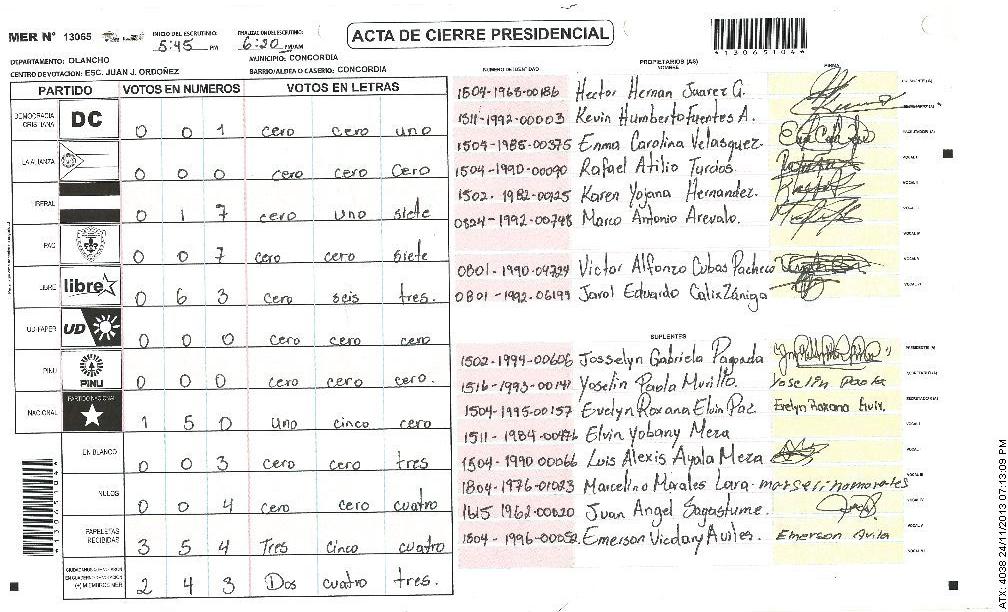 MER N° 13065
INICIO DEL ESCRUTINIO: 5:45 PM
FINALIZACION DEL ESCRUTINIO: 6:20 PM/AM
ACTA DE CIERRE PRESIDENCIAL
13065104
DEPARTAMENTO: OLANCHO
MUNICIPIO: CONCORDIA
CENTRO DE VOTACION: ESC. JUAN J. ORDOÑEZ
BARRIO/ALDEA O CASERIO: CONCORDIA
PARTIDO VOTOS EN NUMEROS VOTOS EN LETRAS
DEMOCRACIA CRISTIANA DC 0 0 1 cero cero uno
LA ALIANZA 0 0 0 cero cero Cero
LIBERAL 0 1 7 cero uno siete
PAC 0 0 7 cero cero siete
LIBRE libre 0 6 3 cero seis tres.
UD-FAPER UD 0 0 0 cero cero cero
PINU PINU 0 0 0 cero cero cero.
NACIONAL PARTIDO NACIONAL 1 5 0 uno cinco cero
EN BLANCO 0 0 3 cero cero tres
NULOS 0 0 4 cero cero cuatro
PAPELETAS RECIBIDAS 3 5 4 Tres cinco cuatro
(+) MIEMBROS MER 2 4 3 Dos cuatro tres.
PROPIETARIOS (AS)
NUMERO DE IDENTIDAD NOMBRE FIRMA
1504-1968-00186 Hector Hernan Juarez G.
1511-1992-00003 Kevin Humberto Fuentes A.
1504-1985-00375 Enma Carolina Velasquez.
1504-1990-00090 Rafael Atilio Turcios.
1502-1982-00125 Karen Yojana Hernandez.
0824-1992-00748 Marco Antonio Arevalo.
0801-1990-04724 Victor Alfonzo Cubas Pacheco
0801-1992-06199 Jarol Eduardo Calix Zúniga
SUPLENTES
1502-1994-00606 Josselyn Gabriela Pagoada
1516-1993-00141 Yoselin Paola Murillo. Yoselin Paola
1504-1995-00157 Evelyn Roxana Elvin Paz Evelyn Roxana
1511-1984-00476 Elvin Yobany Meza
1504-1990 00066 Luis Alexis Ayala Meza
1804-1976-01023 Marcelino Morales Lara. marselinomorales
1615 1962-00020 Juan Angel Sagastume.
1504-1996-00052 Emerson Vicdany Aviles. Emerson Avila
ATX: 4038 24/11/2013 07:13:09 PM